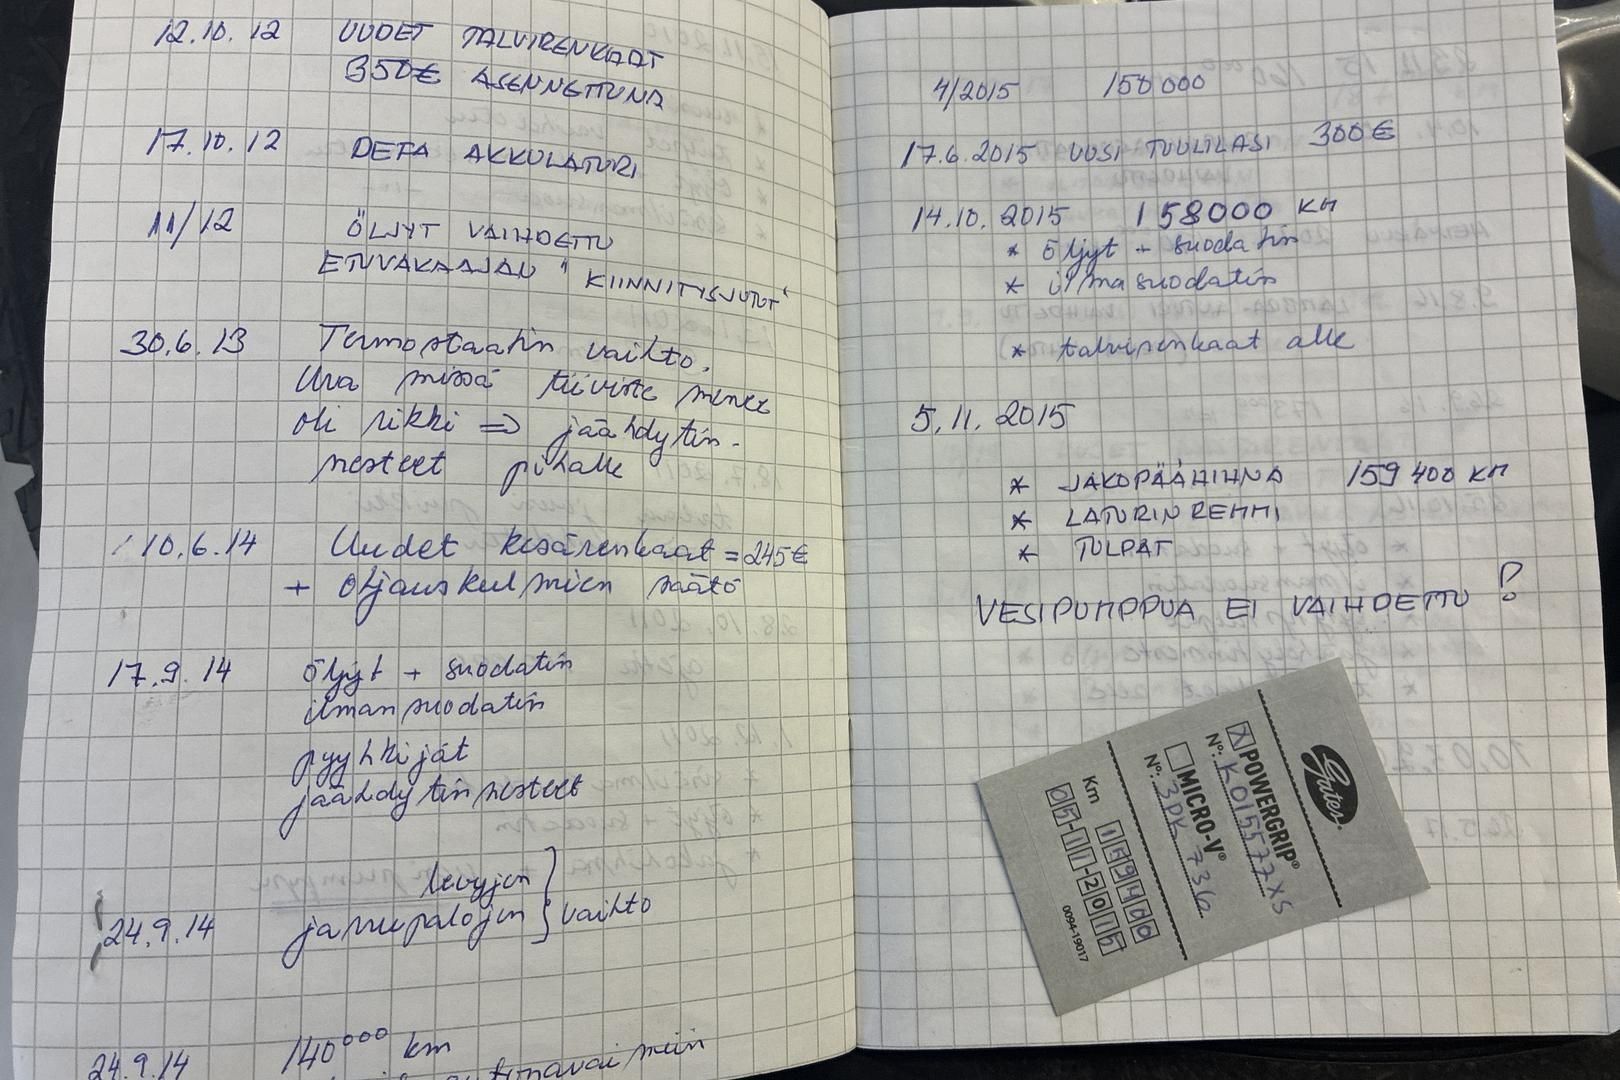 12.10.12 UUDET TALVIRENKAAT
350€ ASENNETTUNA
17.10.12 DEFA AKKULATURI
11/12 ÖLJYT VAIHDETTU
ETUVAKAAJAN "KIINNITYSJUTUT"
30.6.13 Termostaatin vaihto.
Ura missä tiiviste menee
oli rikki => jäähdytin-
nesteet pihalle
10.6.14 Uudet kesärenkaat = 245€
+ ohjauskulmien säätö
17.9.14 öljyt + suodatin
ilmansuodatin
pyyhkijät
jäähdytinnesteet
24.9.14 levyjen
jarrupalojen } vaihto
24.9.14 140000 km
4/2015 150000
17.6.2015 UUSI TUULILASI 300€
14.10.2015 158000 KM
* öljyt + suodatin
* ilmasuodatin
* talvirenkaat alle
5.11.2015
* JAKOPÄÄHIHNA 159400 KM
* LATURIN REMMI
* TULPAT
VESIPUMPPUA EI VAIHDETTU ?
Gates
X POWERGRIP®
N°: K015577XS
MICRO-V®
N°: 3PK 736
Km 159400
05-11-2015
0094-19017